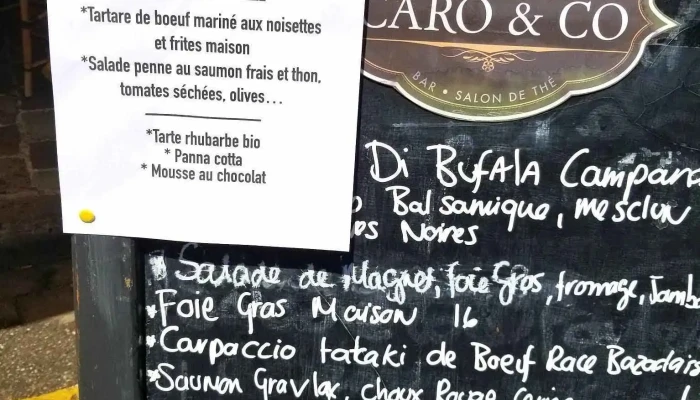 *Tartare de boeuf mariné aux noisettes
et frites maison
*Salade penne au saumon frais et thon,
tomates séchées, olives...
*Tarte rhubarbe bio
* Panna cotta
* Mousse au chocolat
CARO & CO
BAR • SALON DE THÉ
Di BuFAlA Campana
Balsamique, mesclun
Noires
Salade de Magret, foie Gros, fromage, Jamb
*Foie Gras Maison 16
*Carpaccio tataki de Boeuf Race Bazadais
*Saumon Gravlax, choux Rouge